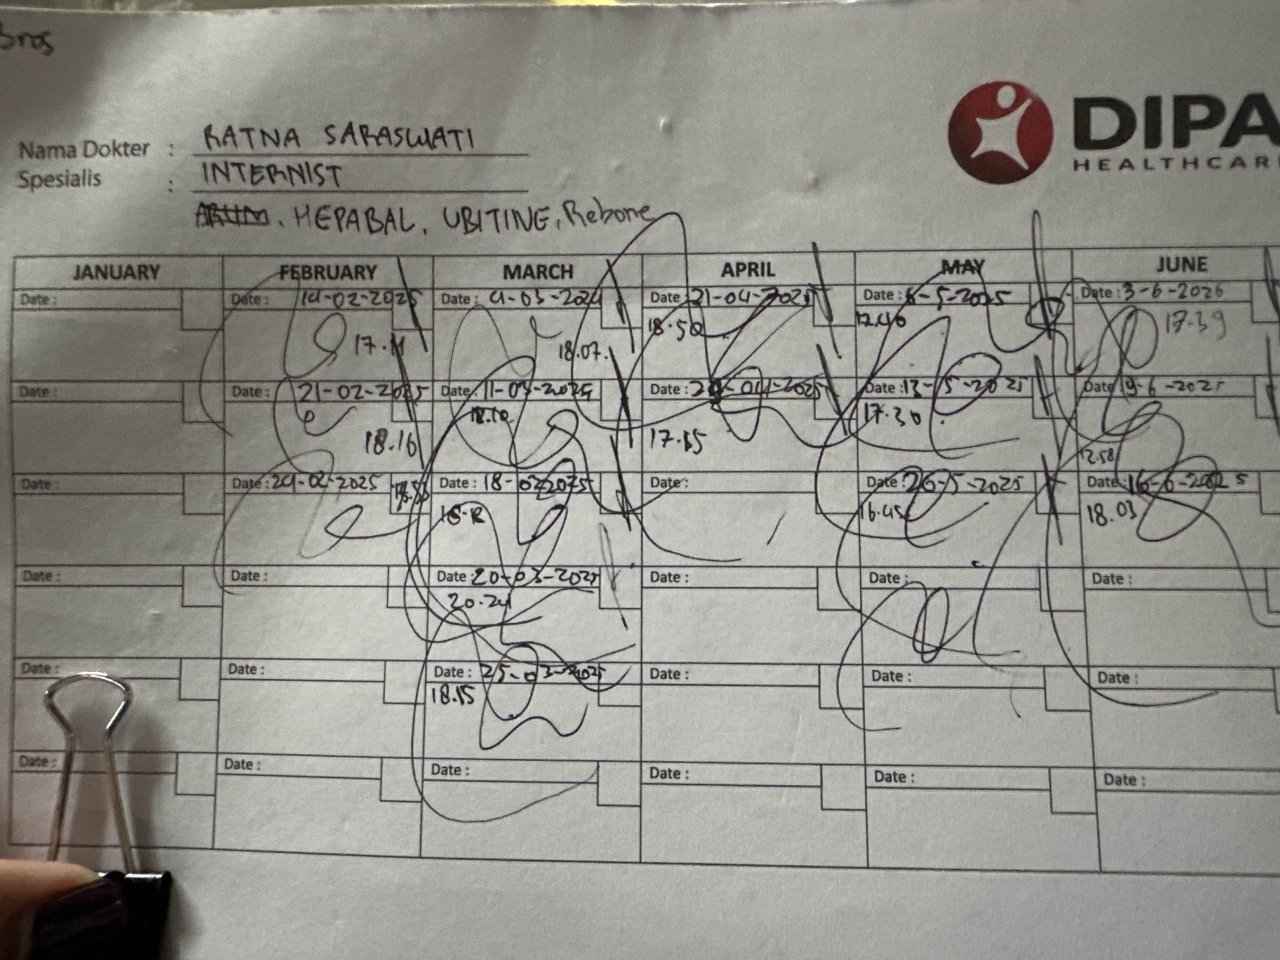 Bros
Nama Dokter : RATNA SARASWATI
Spesialis : INTERNIST
HEPABAL, UBITINE, Rebone
DIPA
HEALTHCAR
JANUARY FEBRUARY MARCH APRIL MAY JUNE
Date : Date : 14-02-2025 Date : 4-03-2024 Date : 21-04-2025 Date : 6-5-2025 Date : 3-6-2025
18.07 18.50 17.39
Date : Date : 21-02-2025 Date : 11-03-2025 Date : Date : 13-5-2025 Date : 9-6-2025
18.16 18.10 17.15 17.30 12.58
Date : Date : 24-02-2025 Date : Date : Date : 26-5-2025 Date : 16-6-2025
16.45 18.03
Date : Date : Date : 20-03-2025 Date : Date : Date :
20.24
Date : Date : Date : 25-03-2025 Date : Date : Date :
18.15
Date : Date : Date : Date : Date : Date :